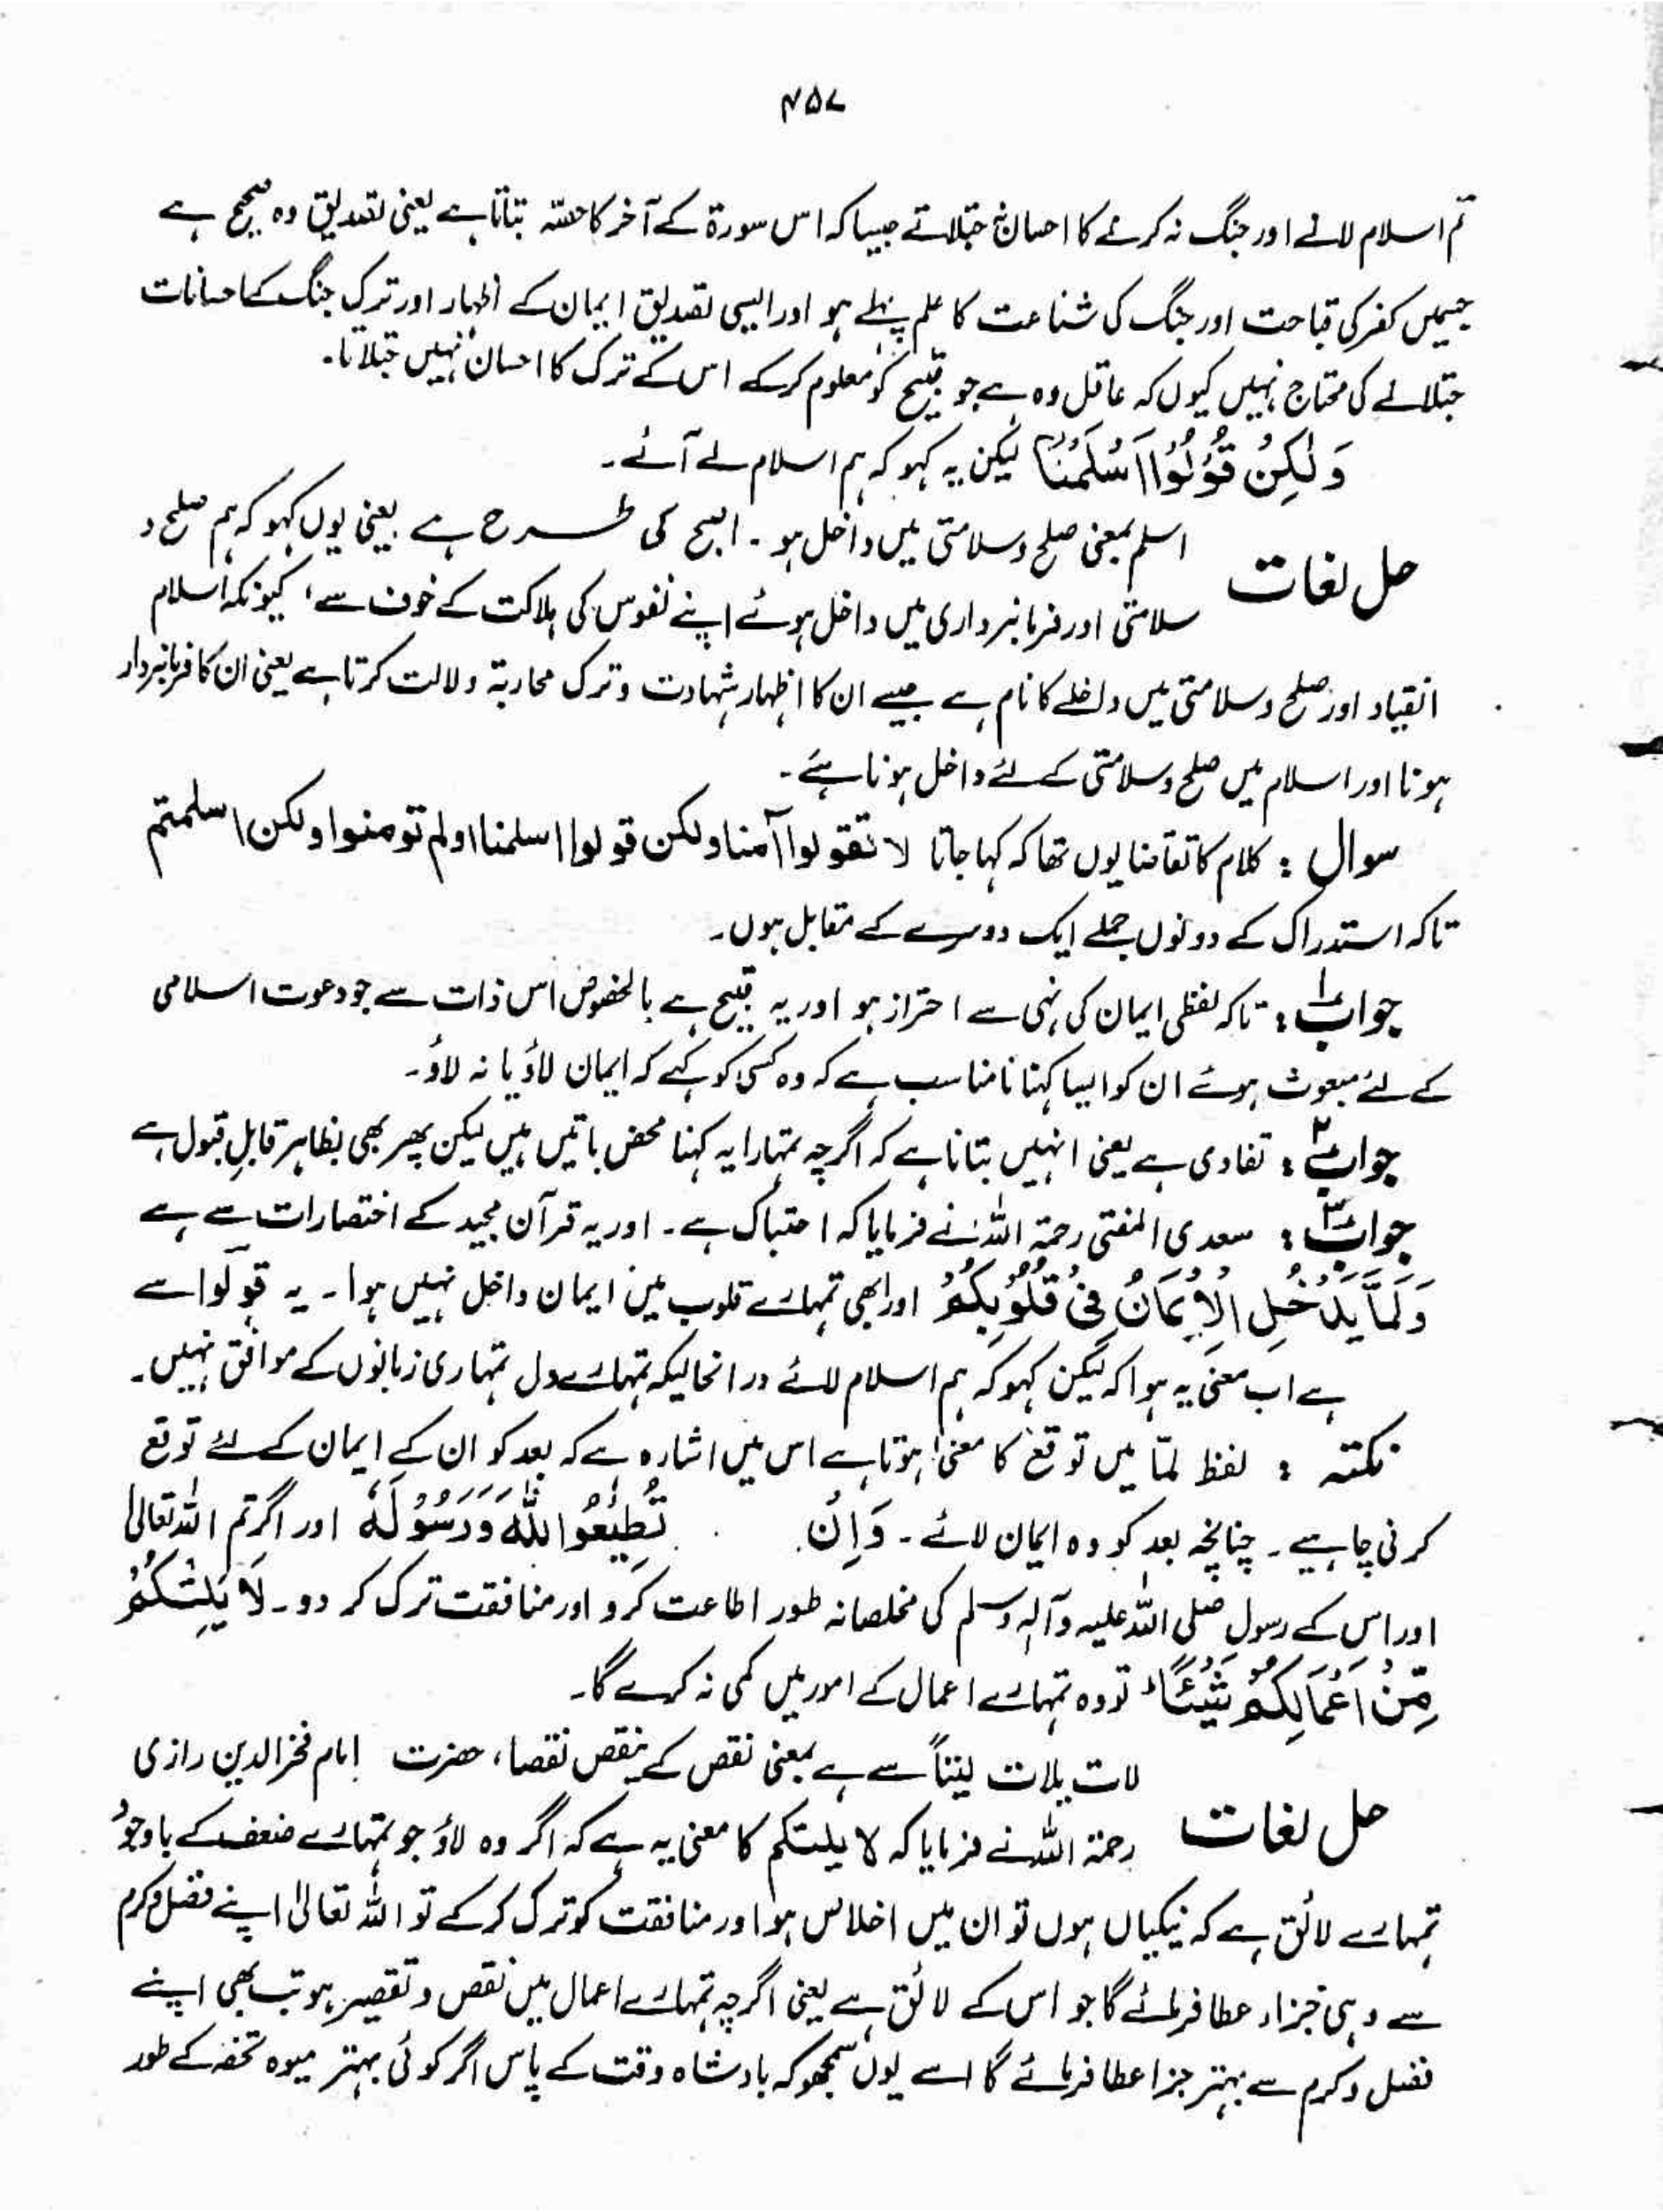 ۴۵۷
تم اسلام لانے اور جنگ نہ کرنے کا احسان نہ جتلاتے جیسا کہ اس سورۃ کے آخر کا حصّہ بتاتا ہے یعنی تصدیق وہ صحیح ہے
جسمیں کفر کی قباحت اور جنگ کی شناعت کا علم پہلے ہو اور ایسی تصدیق ایمان کے اظہار اور ترک جنگ کے احسانات
جتلانے کی محتاج نہیں کیوں کہ عاقل وہ ہے جو قبیح کو معلوم کرکے اس کے ترک کا احسان نہیں جتلاتا۔
وَلٰکِنْ قُوْلُوْۤا اَسْلَمْنَا لیکن یہ کہو کہ ہم اسلام لے آئے۔
حل لغات اسلم بمعنی صلح وسلامتی میں داخل ہو۔ اصبح کی طرح ہے یعنی یوں کہو کہ ہم صلح و
سلامتی اور فرمانبرداری میں داخل ہوئے اپنے نفوس کی ہلاکت کے خوف سے، کیونکہ اسلام
انقیاد اور صلح وسلامتی میں داخلے کا نام ہے جیسے ان کا اظہار شہادت و ترک محاربۃ دلالت کرتا ہے یعنی ان کا فرمانبردار
ہونا اور اسلام میں صلح وسلامتی کے لئے داخل ہونا ہے۔
سوال : کلام کا تقاضا یوں تھا کہ کہا جاتا لا تقولوا آمنا ولکن قولوا اسلمنا اولم تومنوا ولکن اسلمتم
تاکہ استدراک کے دونوں جملے ایک دوسرے کے مقابل ہوں۔
جواب۱ : تاکہ لفظی ایمان کی نہی سے احتراز ہو اور یہ قبیح ہے بالخصوص اس ذات سے جو دعوت اسلامی
کے لئے مبعوث ہوئے ان کو ایسا کہنا نامناسب ہے کہ وہ کسی کو کہے کہ ایمان لاؤ یا نہ لاؤ۔
جواب۲ : تفادی ہے یعنی انہیں بتانا ہے کہ اگرچہ تمہارا یہ کہنا محض باتیں ہیں لیکن پھر بھی بظاہر قابلِ قبول ہے
جواب۳ : سعدی المفتی رحمۃ اللہ نے فرمایا کہ احتباک ہے۔ اور یہ قرآن مجید کے اختصارات سے ہے
وَلَمَّا یَدْخُلِ الْاِیْمَانُ فِیْ قُلُوْبِکُمْ اور ابھی تمہارے قلوب میں ایمان داخل نہیں ہوا۔ یہ قولوا سے
ہے اب معنیٰ یہ ہوا کہ لیکن کہو کہ ہم اسلام لائے درانحالیکہ تمہارے دل تمہاری زبانوں کے موافق نہیں۔
نکتہ : لفظ لمّا میں توقع کا معنیٰ ہوتا ہے اس میں اشارہ ہے کہ بعد کو ان کے ایمان کے لئے توقع
کرنی چاہیے۔ چنانچہ بعد کو وہ ایمان لائے۔ وَاِنْ تُطِیْعُوا اللّٰہَ وَرَسُوْلَہٗ اور اگر تم اللہ تعالیٰ
اور اس کے رسول صلی اللہ علیہ وآلہٖ وسلم کی مخلصانہ طور اطاعت کرو اور منافقت ترک کر دو۔ لَا یَلِتْکُمْ
مِّنْ اَعْمَالِکُمْ شَیْئًا تو وہ تمہارے اعمال کے امور میں کمی نہ کرے گا۔
حل لغات لات یلات لیتاً سے ہے بمعنی نقص کے ینقص نقصا، حضرت امام فخرالدین رازی
رحمۃ اللہ نے فرمایا کہ لا یلتکم کا معنی یہ ہے کہ اگر وہ لاؤ جو تمہارے ضعف کے باوجود
تمہارے لائق ہے کہ نیکیاں ہوں تو ان میں اخلاص ہو اور منافقت کو ترک کرکے تو اللہ تعالیٰ اپنے فضل وکرم
سے وہی جزاء عطا فرمائے گا جو اس کے لائق ہے یعنی اگرچہ تمہارے اعمال میں نقص و تقصیر ہو تب بھی اپنے
فضل وکرم سے بہتر جزا عطا فرمائے گا اسے یوں سمجھو کہ بادشاہ وقت کے پاس اگر کوئی بہتر میوہ تحفہ کے طور